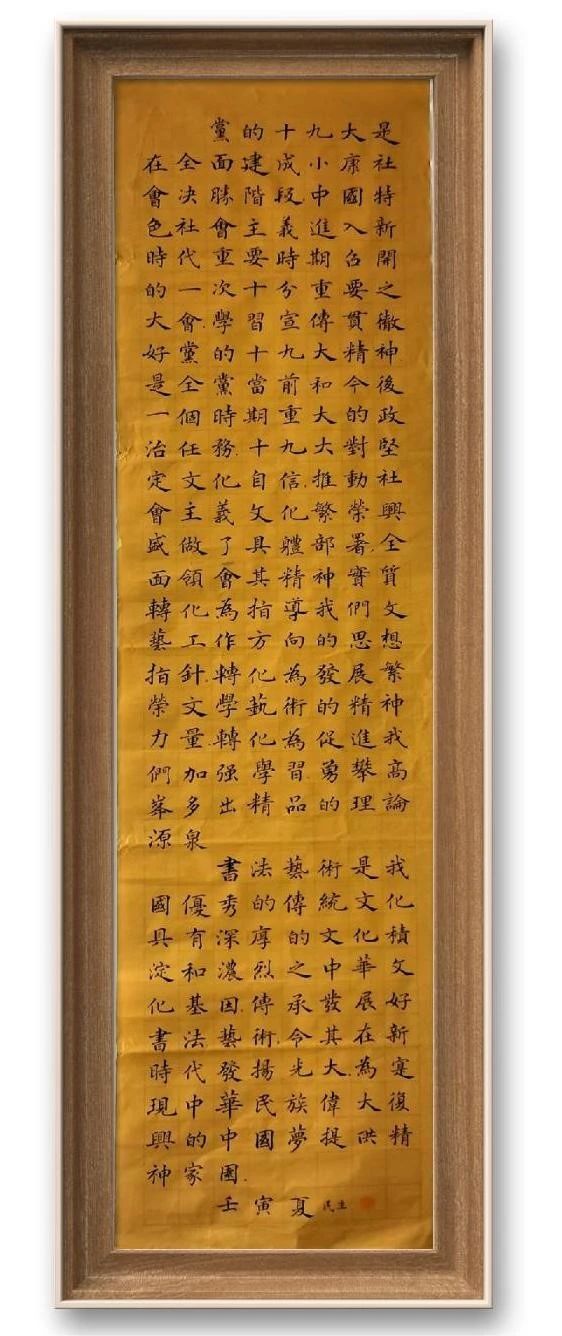 黨的十九大是
在全面建成小康社
會決勝階段中國特
色社會主義進入新
時代重要時期召開
的一次十分重要之
大會.學習宣傳貫徹
好黨的十九大精神
是全黨當前和今後
一個時期重大的政
治任務.十九大對堅
定文化自信.推動社
會主義文化繁榮興
盛做了具體部署.全
面領會其精神實質
轉化為指導我們文
藝工作方向的思想
指針.轉化為發展繁
榮文學藝術的精神
力量.轉化為促進我
們加强學習.勇攀高
峯多出精品的理論
源泉
書法藝術是我
國優秀的傳統文化
具有深厚的文化積
淀和濃烈之中華文
化基因.傳承發展好
書法藝術.令其在新
時代發揚光大.為寔
現中華民族偉大復
興的中國夢提洪精
神家國.
壬寅夏 民生